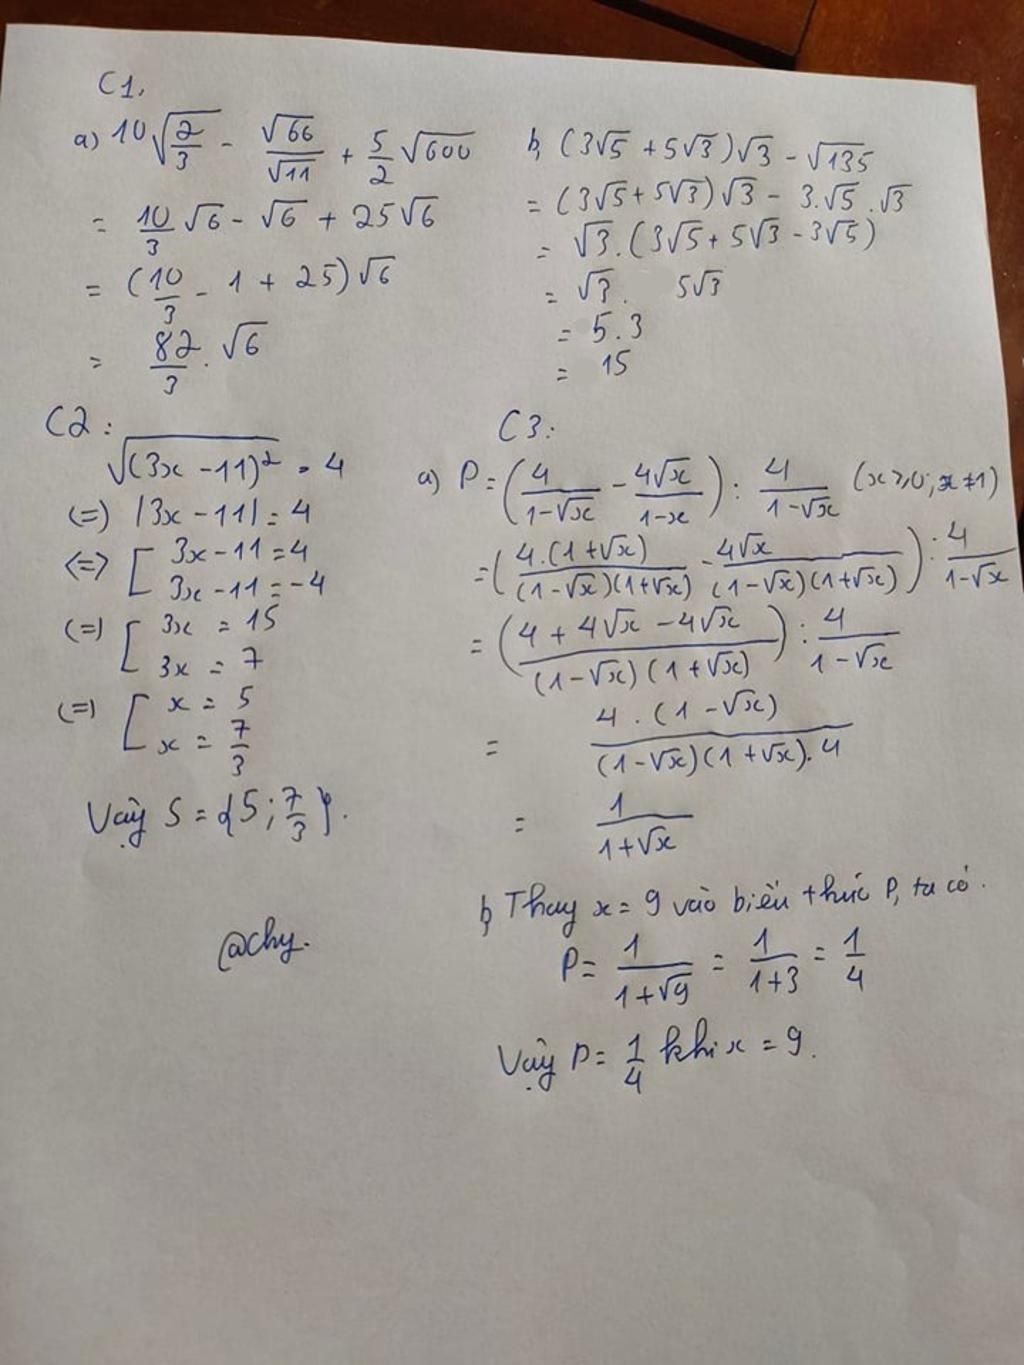 C1,
a) 10√(2/3) - √66/√11 + 5/2 √600
= 10/3 √6 - √6 + 25√6
= (10/3 - 1 + 25)√6
= 82/3 . √6
b, (3√5 + 5√3)√3 - √135
= (3√5 + 5√3)√3 - 3.√5.√3
= √3.(3√5 + 5√3 - 3√5)
= √3. 5√3
= 5.3
= 15
C2:
√(3x - 11)² = 4
(=) |3x - 11| = 4
<=> [ 3x - 11 = 4
3x - 11 = -4
(=) [ 3x = 15
3x = 7
(=) [ x = 5
x = 7/3
Vậy S = {5; 7/3}.
@chy.
C3:
a) P = (4/(1-√x) - 4√x/(1-x)) : 4/(1-√x) (x ≥ 0; x ≠ 1)
= (4.(1+√x)/((1-√x)(1+√x)) - 4√x/((1-√x)(1+√x))) : 4/(1-√x)
= ((4 + 4√x - 4√x)/((1-√x)(1+√x))) : 4/(1-√x)
= 4.(1-√x)/((1-√x)(1+√x).4)
= 1/(1+√x)
b, Thay x = 9 vào biểu thức P, ta có.
P = 1/(1+√9) = 1/(1+3) = 1/4
Vậy P = 1/4 khi x = 9.